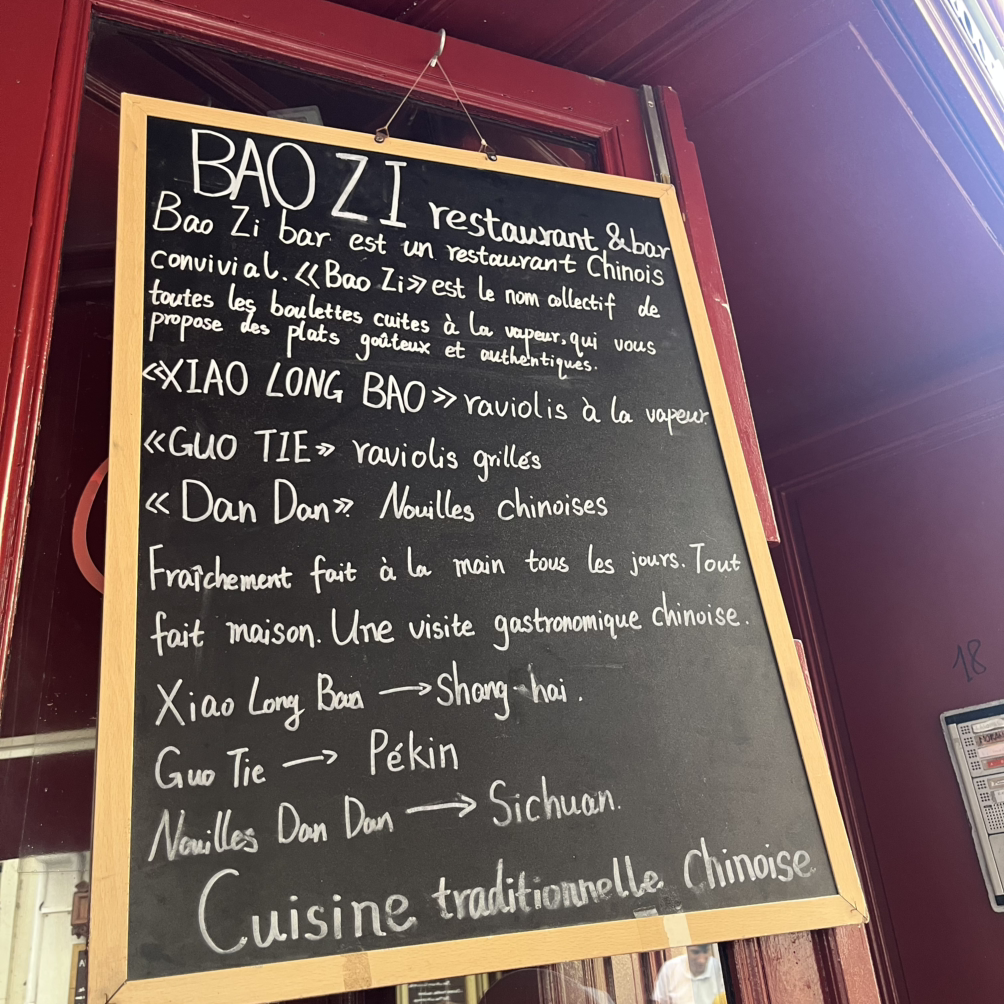 BAO ZI restaurant & bar
Bao Zi bar est un restaurant Chinois
convivial. «Bao Zi» est le nom collectif de
toutes les boulettes cuites à la vapeur, qui vous
propose des plats goûteux et authentiques.
«XIAO LONG BAO» raviolis à la vapeur
«GUO TIE» raviolis grillés
«Dan Dan» Nouilles chinoises
Fraîchement fait à la main tous les jours. Tout
fait maison. Une visite gastronomique chinoise.
Xiao Long Bao → Shang-hai.
Guo Tie → Pékin
Nouilles Dan Dan → Sichuan.
Cuisine traditionnelle Chinoise
18